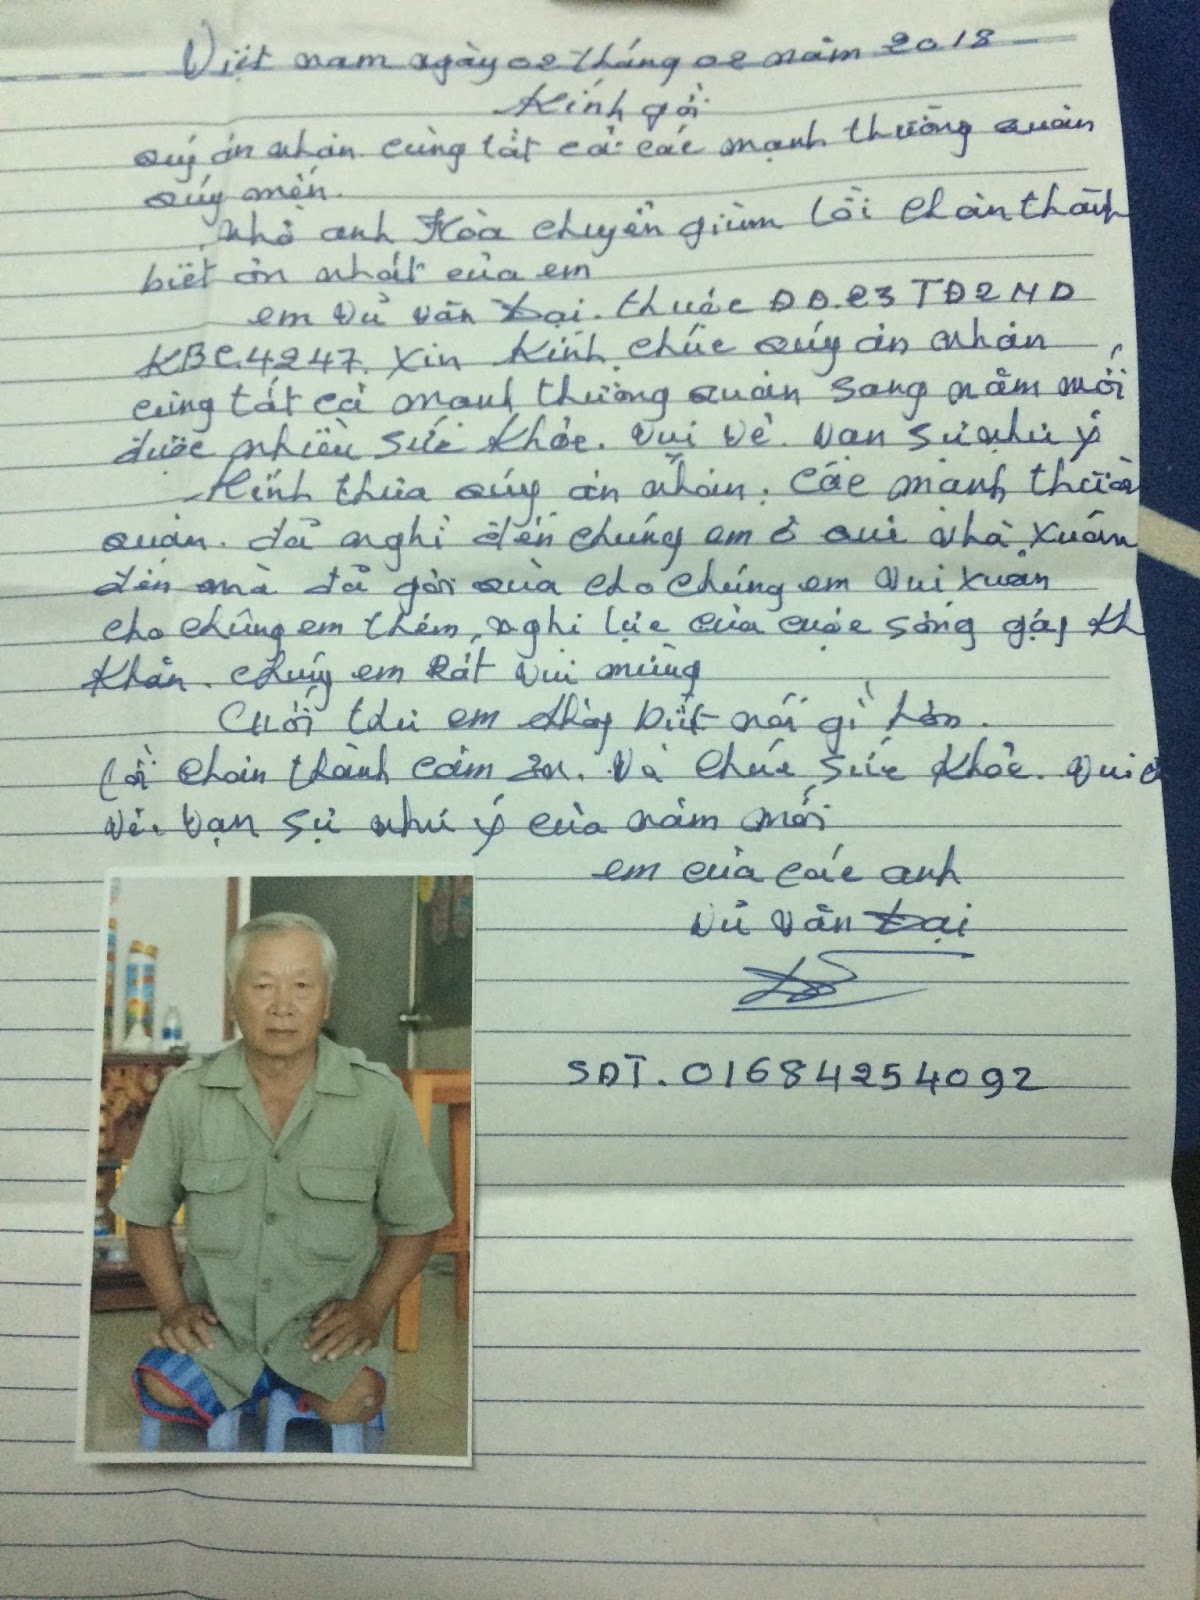 Việt nam ngày 02 tháng 02 năm 2018
Kính gởi
quý ân nhân cùng tất cả các mạnh thường quân
quý mến.
Nhờ anh Hòa chuyển giùm lời chân thành
biết ơn nhất của em
em Vủ Văn Đại. thuộc ĐĐ.23 TĐ2 ND
KBC.4247. Xin Kính chúc quý ân nhân
cùng tất cả mạnh thường quân sang năm mới
được nhiều sức khỏe. Vui vẻ. Vạn sự như ý
Kính thưa quý ân nhân. các mạnh thườn
quân. đả nghỉ đến chúng em ở quê nhà. Xuân
đến mà đả gởi quà cho chúng em vui xuân
cho chúng em thêm nghị lực của cuộc sống gặp kh
khăn. chúng em Rất vui mừng
Cuối thư em không biết nói gì hơn.
lời chân thành cảm ơn. Và chúc sức khỏe. Vui
vẻ. Vạn sự như ý của năm mới
em của các anh
Vủ Văn Đại
SĐT. 01684254092